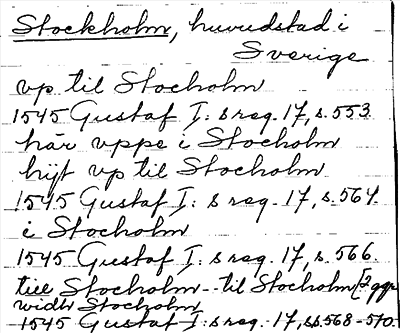 Stockholm, huvudstad i
Sverige
vp til Stocholm
1545 Gustaf I:s reg. 17, s. 553
här vppe i Stocholm
hijt vp til Stocholm
1545 Gustaf I:s reg. 17, s. 564
i Stocholm
1545 Gustaf I:s reg. 17, s. 566.
till Stocholm - til Stocholm [2 ggr
widh Stocholm
1545 Gustaf I:s reg. 17, ss. 568-570.